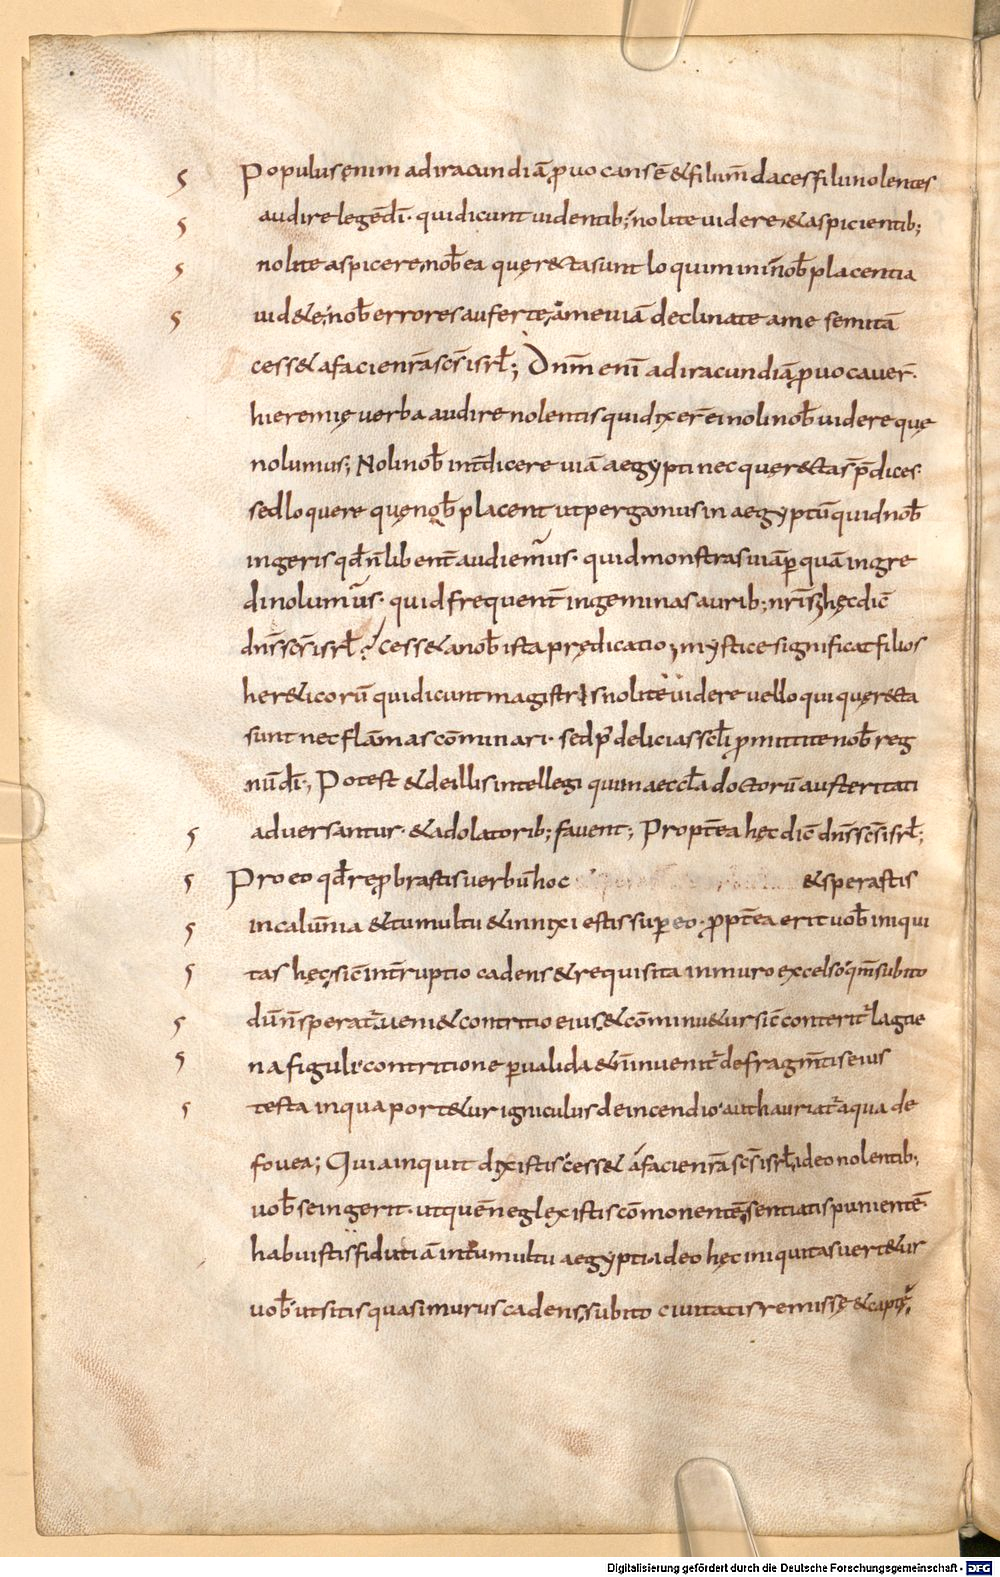 Populus enim ad iracundiā ꝓuocans ē & filii m̄daces filii nolentes
audire legē dī· qui dicunt uidentib; nolite uidere & aspicientib;
nolite aspicere nob̄ ea quę recta sunt loquimini nob̄ placentia
uid&e nob̄ errores auferte a me uiā declinate a me semitā
cess& a facie nr̄a sc̄s isrl̄; Dn̄m enī ad iracundiā ꝓuocauer̄·
hieremię uerba audire nolentis qui dixer̄ ei noli nob̄ uidere quę
nolumus; Noli nob̄ int̄dicere uiā aegypti nec quę recta s̄ p̄dices
sed loquere quę nob̄ placent ut pergamus in aegyptū quid nob̄
ingeris qd̄ n̄ libent̄ audiemus· quid monstras uiā ꝑ quā ingre
di nolumus· quid frequent̄ ingeminas aurib; nr̄is hęc dic̄
dn̄s sc̄s isrl̄? cess& a nob̄ ista prędicatio; mystice significat filios
her&icorū qui dicunt magistris nolite uidere uel loqui quę recta
sunt nec flāmas cōminari· sed ꝑ delicias scl̄i ꝓmittite nob̄ reg
nū dī; Potest & de illis intellegi qui in aeccl̄a doctorū austeritati
aduersantur· & adolatorib; fauent; Propt̄ea hęc dic̄ dn̄s sc̄s isrl̄;
Pro eo qd̄ reꝓbrastis uerbū hoc & sperastis
in calūnia & tumultu & innixi estis suꝑ eo· ꝓpt̄ea erit uob̄ iniqui
tas hęc sic̄ int̄ruptio cadens & requisita in muro excelso qm̄ subito
dū n̄ sperat̄ ueni& contritio eius & cōminu&ur sic̄ conterit̄ lague
na figuli contritione ꝑualida & n̄ inuenit̄ de fragm̄tis eius
testa in qua port&ur igniculus de incendio aut hauriat̄ aqua de
fouea; Quia inquit dixistis cess& a facie nr̄a sc̄s isrl̄ ideo nolentib;
uob̄ se ingerit· ut quē neglexistis cōmonentē sentiatis punientē·
habuistis fidutiā in tumultu aegypti· ideo hęc iniquitas uert&ur
uob̄ ut sitis quasi murus cadens subito ciuitatis remissę & captę;
Digitalisierung gefördert durch die Deutsche Forschungsgemeinschaft - DFG